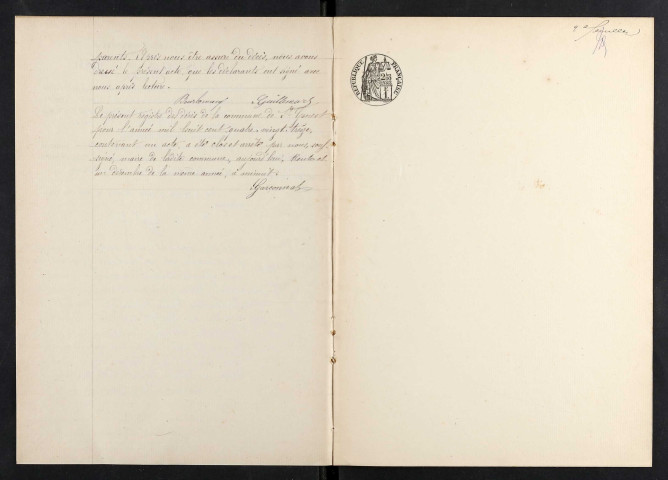 parents. Après nous être assuré du décès, nous avons
dressé le présent acte, que les déclarants ont signé avec
nous après lecture.
Le présent registre des décès de la commune de St
pour l'année mil huit cent quatre-vingt-treize,
contenant un acte, a été clos et arrêté par nous, sous
signé, maire de ladite commune, aujourd'hui, trente et
un décembre de la même année, à minuit.
RÉPUBLIQUE FRANÇAISE